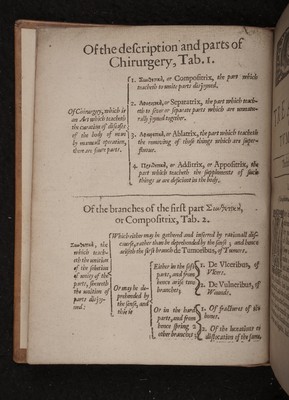 Of the description and parts of
Chirurgery, Tab. 1.
Of Chirurgery, which is
an Art which teacheth
the curation of diseases
of the body of man
by manuall operation,
there are foure parts.
1. Συνθετικὴ, or Compositrix, the part which
teacheth to unite parts disjoyned.
2. or Separatrix, the part which teach-
eth to sever or separate parts which are unnatu-
rally joyned together.
3. or Ablatrix, the part which teacheth
the removing of those things which are super-
fluous.
4. or Additrix, or Appositrix, the
part which teacheth the supplements of such
things as are deficient in the body.
Of the branches of the first part Συνθετικὴ,
or Compositrix, Tab. 2.
Συνθετικὴ, the
which teach-
eth the unition
of the solution
of unity of the
parts, sorteth
the unition of
parts disjoy-
ned:
Which either may be gathered and inferred by rationall dis-
course, rather than be deprehended by the sense; and hence
ariseth the first branch de Tumoribus, of Tumors.
Or may be de-
prehended by
the sense, and
this is
Either in the soft
parts, and from
hence arise two
branches;
1. De Vlceribus, of
Vlcers.
2. De Vulneribus, of
Wounds.
Or in the hard
parts, and from
hence spring 2
other branches;
1. Of fractures of the
bones.
2. Of the luxations or
dislocation of the same.